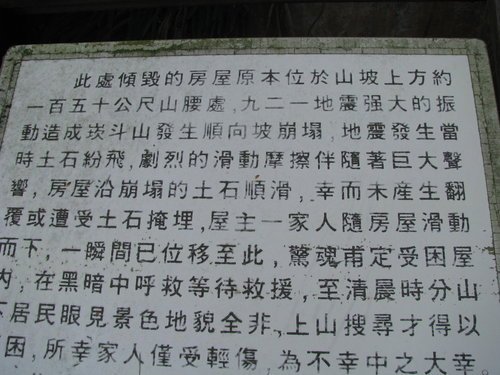 此處傾毀的房屋原本位於山坡上方約
一百五十公尺山腰處,九二一地震强大的振
動造成崁斗山發生順向坡崩塌,地震發生當
時土石紛飛,劇烈的滑動摩擦伴隨著巨大聲
響,房屋沿崩塌的土石順滑,幸而未產生翻
覆或遭受土石掩埋,屋主一家人隨房屋滑動
而下,一瞬間已位移至此,驚魂甫定受困屋
內,在黑暗中呼救等待救援,至清晨時分山
下居民眼見景色地貌全非,上山搜尋才得以
困,所幸家人僅受輕傷,為不幸中之大幸。